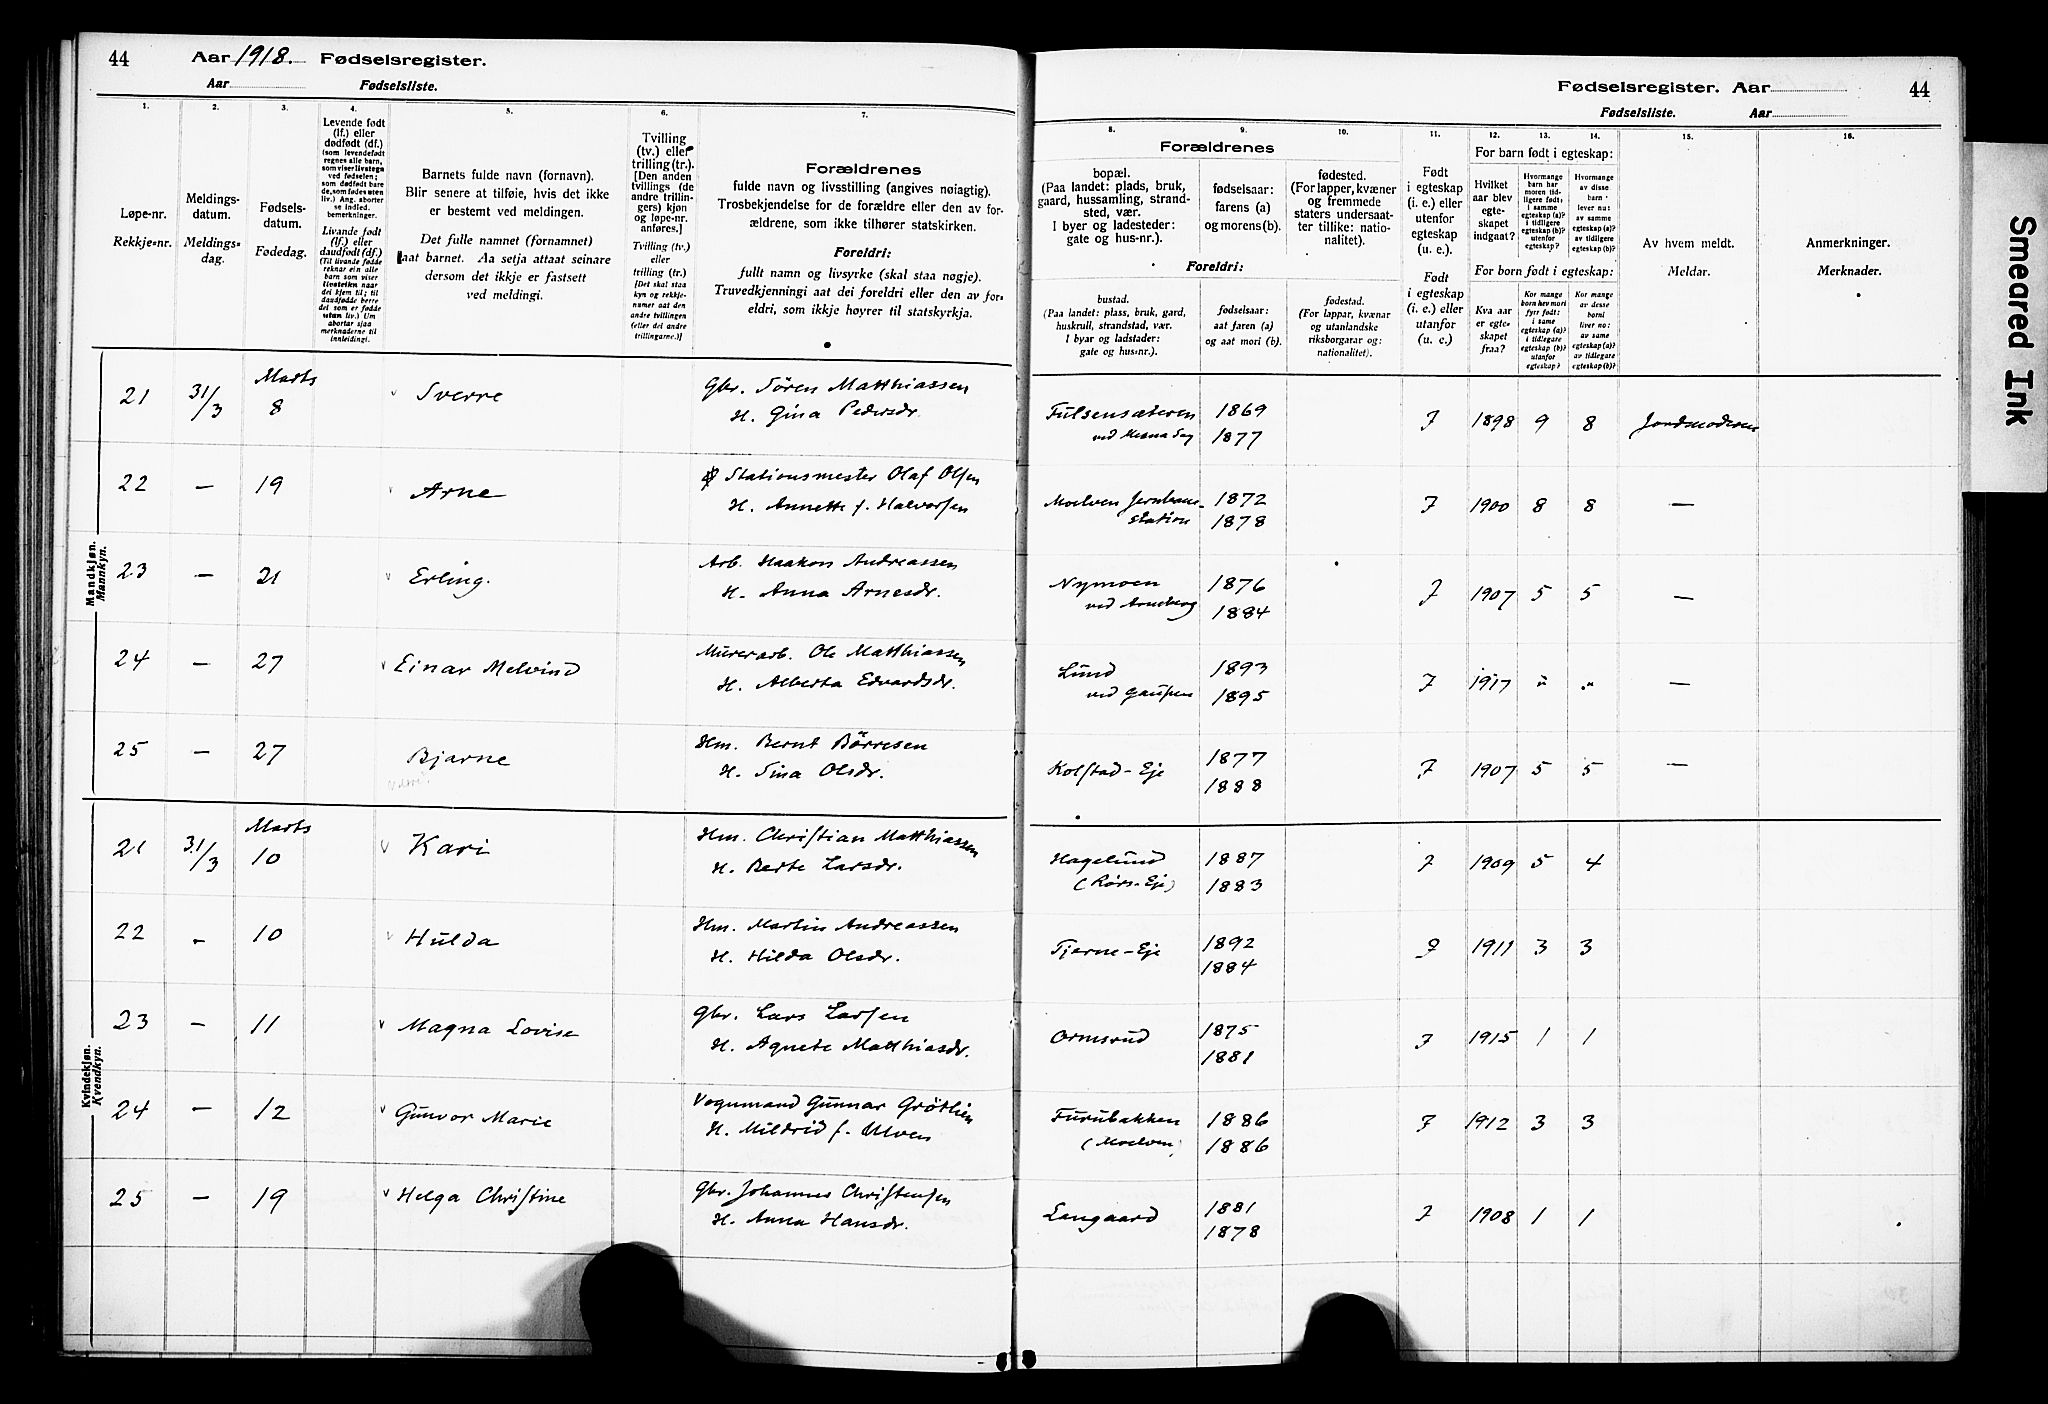 44 Aar 1918. Fødselsregister.
Aar Fødselsliste.
Fødselsregister. Aar 44
Fødselsliste. Aar
1. 2. 3. 4. 5. 6. 7.
8. 9. 10. 11. 12. 13. 14. 15. 16.
Løpe-nr.
Rekkje-nr.
Meldings-
datum.
Meldings-
dag.
Fødsels-
datum.
Fødedag.
Levende født
(lf.) eller
dødfødt (df.)
(som levendefødt
regnes alle barn,
som viser livstegn
ved fødselen;
som dødfødt bare
de, som fødes uten
liv.) Ang. aborter
se indled.
bemerkninger.
Livande født
(lf.) eller
daudfødt (df.)
(Til livande fødde
reknar ein alle
barn som viser
livsteikn naar
dei kjem til; til
daudfødde berre
dei som er fødde
utan liv.) Um
abortar sjaa
merknaderne til
innleidingi.
Barnets fulde navn (fornavn).
Blir senere at tilføie, hvis det ikke
er bestemt ved meldingen.
Det fulle namnet (fornamnet)
aat barnet. Aa setja attaat seinare
dersom det ikkje er fastsett
ved meldingi.
Tvilling
(tv.) eller
trilling (tr.).
[Den anden
tvillings (de
andre trillin-
gers) kjøn
og løpe-nr.
anføres.]
Tvilling (tv.)
eller
trilling (tr.)
[Det skal staa
kyn og rekkje-
numer aat den
andre tvillingen
(eller dei andre
trillingarne.)]
Forældrenes
fulde navn og livsstilling (angives nøiagtig).
Trosbekjendelse for de forældre eller den av for-
ældrene, som ikke tilhører statskirken.
Foreldri:
fullt namn og livsyrke (skal staa nøgje).
Truvedkjenningi aat dei foreldri eller den av for-
eldri, som ikkje høyrer til statskyrkja.
Forældrenes
bopæl.
(Paa landet: plads, bruk,
gaard, hussamling, strand-
sted, vær.
I byer og ladesteder:
gate og hus-nr.).
fødselsaar:
farens (a)
og morens (b).
fødested.
(For lapper, kvæner
og fremmede
staters undersaat-
ter tillike: natio-
nalitet).
Foreldri:
bustad.
(Paa landet: plass, bruk, gard,
huskrull, strandstad, vær.
I byar og ladstader:
gate og hus-nr.).
fødselsaar:
aat faren (a)
og aat mori (b).
fødestad.
(For lappar, kvænar
og utanlandske
riksborgarar og:
nationalitet).
Født
i egteskap
(i. e.) eller
utenfor
egteskap
(u. e.).
Født
i egteskap
(i. e.) eller
utanfor
(u. e.)
For barn født i egteskap:
Hvilket
aar blev
egte-
skapet
indgaat?
Hvormange
barn har
moren tid-
ligere født:
i samme
egteskap (a)?
i tidligere
egteskap (b)?
utenfor
egteskap?
Hvormange
av disse
barn
lever nu:
av samme
egteskap (a)?
av tidligere
egteskap (b)?
For born født i egteskap:
Kva aar
er egte-
skapet
fraa?
Kor mange
born hev mori
fyrr født:
i same
egteskap (a)?
i tidlegare
egteskap (b)?
utanfor
egteskap?
Kor mange
av desse
borni
liver no:
av same
egteskap (a)?
av tidlegare
egteskap (b)?
Av hvem meldt.
Meldar.
Anmerkninger.
Merknader.
Smeared Ink
Mandkjøn.
Mannkyn.
21 31/3 Marts 8 v Sverre Gbr. Sören Matthiassen
H. Gina Pedersdr. 1869 1877 J 1898 9 8 Jordmoderen
22 — 19 v Arne Stationsmester Olaf Olsen
H. Annette f. Halvorsen Moelven Jernbane-
station 1872 1878 J 1900 8 8 —
23 — 21 v Erling. Arb. Haakon Andreassen
H. Anna Arnesdr. Nymoen
ved Arneberg 1876 1884 J 1907 5 5 —
24 — 27 v Einar Melvind Murerarb. Ole Matthiassen
H. Alberta Edvardsdr. Lund
ved Gaupen 1893 1895 J 1917 " " —
25 — 27 Bjarne Hm. Bernt Börresen
H. Sina Olsdr. Kolstad-Eje 1877 1888 J 1907 5 5 —
Kvindekjøn.
Kvendkyn.
21 31/3 Marts 10 v Kari Hm. Christian Matthiassen
H. Berte Larsdr. Hagelund
(Rørs-Eje) 1887 1883 J 1909 5 4
22 - 10 v Hulda Hm. Martin Andreassen
H. Hilda Olsdr. Tjerne-Eje 1892 1884 J 1911 3 3
23 — 11 v Magna Lovise Gbr. Lars Larsen
H. Agnete Matthiasdr. Ormsrud 1875 1881 J 1915 1 1
24 — 12 v Gunvor Marie Vognmand Gunnar Grötlien
H. Mildrid f. Ulven Furubakken
(Moelven) 1886 1886 J 1912 3 3
25 — 19 v Helga Christine Gbr. Johannes Christensen
H. Anna Hansdr. Langaard 1881 1878 J 1908 1 1